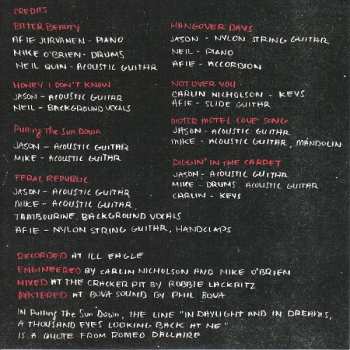 CREDITS
BITTER BEAUTY
AFIE JURVANEN - PIANO
MIKE O'BRIEN - DRUMS
NEIL QUIN - ACOUSTIC GUITAR
HONEY I DON'T KNOW
JASON - ACOUSTIC GUITAR
NEIL - BACKGROUND VOCALS
Pulling The Sun Down
JASON - ACOUSTIC GUITAR
MIKE - ACOUSTIC GUITAR
FERAL REPUBLIC
JASON - ACOUSTIC GUITAR
MIKE - ACOUSTIC GUITAR
TAMBOURINE, BACKGROUND VOCALS
AFIE - NYLON STRING GUITAR, HANDCLAPS
HANGOVER DAYS
JASON - NYLON STRING GUITAR
NEIL - PIANO
AFIE - ACCORDION
NOT OVER YOU
CARLIN NICHOLSON - KEYS
AFIE - SLIDE GUITAR
MOTEL LOVE SONG
JASON - ACOUSTIC GUITAR
MIKE - ACOUSTIC GUITAR, MANDOLIN
DIGGIN' IN THE CARPET
JASON - ACOUSTIC GUITAR
MIKE - DRUMS, ACOUSTIC GUITAR
CARLIN - KEYS
RECORDED AT ILL EAGLE
ENGINEERED BY CARLIN NICHOLSON AND MIKE O'BRIEN
MIXED AT THE CRACKER PIT BY ROBBIE LACKRITZ
MASTERED AT BOVA SOUND BY PHIL BOVA
IN Pulling The Sun Down, THE LINE "IN DAYLIGHT AND IN DREAMS,
A THOUSAND EYES LOOKING BACK AT ME"
IS A QUOTE FROM ROMEO DALLAIRE